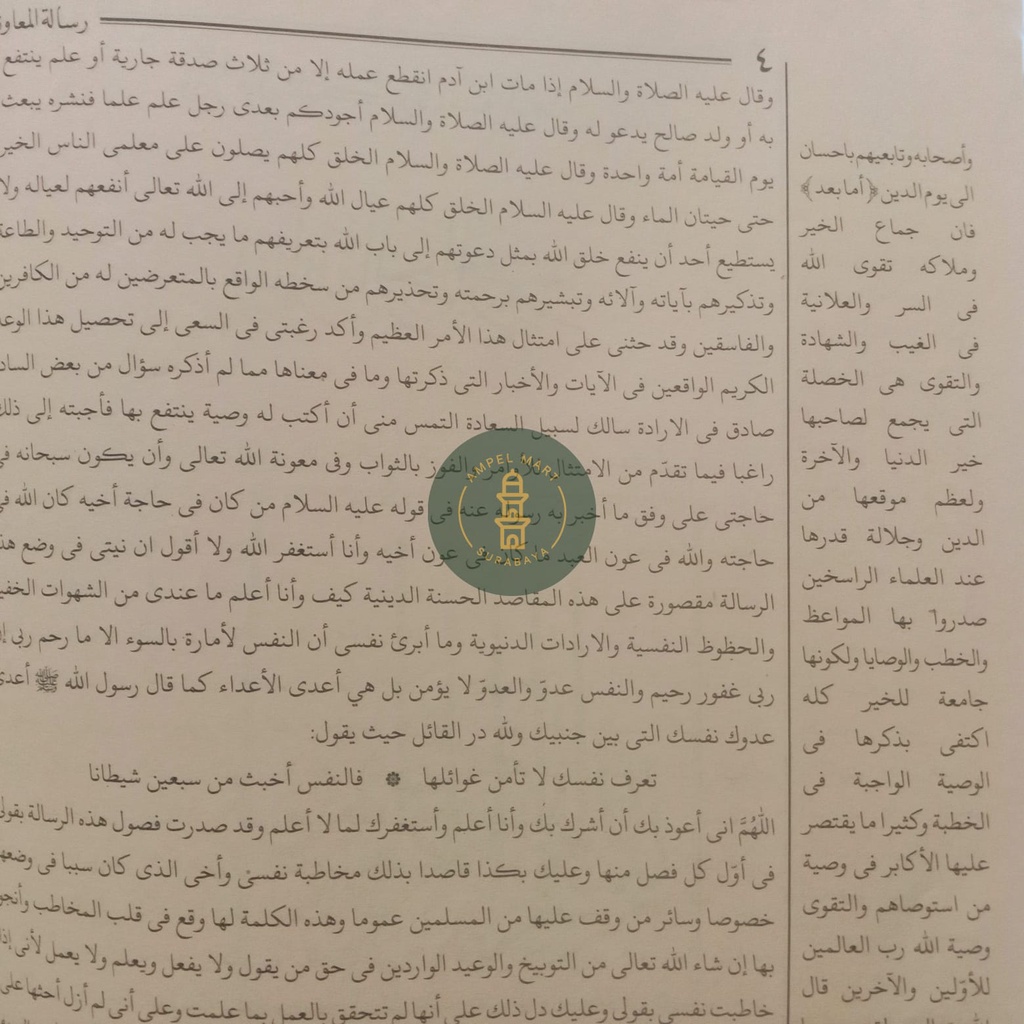 رسالة
٤
وقال عليه الصلاة والسلام إذا مات ابن آدم انقطع عمله إلا من ثلاث صدقة جارية أو علم ينتفع
به أو ولد صالح يدعو له وقال عليه الصلاة والسلام أجودكم بعدى رجل علم علما فنشره يبعث
يوم القيامة أمة واحدة وقال عليه الصلاة والسلام الخلق كلهم يصلون على معلمى الناس الخير
حتى حيتان الماء وقال عليه السلام الخلق كلهم عيال الله وأحبهم إلى الله تعالى أنفعهم لعياله ولا
يستطيع أحد أن ينفع خلق الله بمثل دعوتهم إلى باب الله بتعريفهم ما يجب له من التوحيد والطاعة
وتذكيرهم بآياته وآلائه وتبشيرهم برحمته وتحذيرهم من سخطه الواقع بالمتعرضين له من الكافرين
والفاسقين وقد حثنى على امتثال هذا الأمر العظيم وأكد رغبتى فى السعى إلى تحصيل هذا الوعد
الكريم الواقعين فى الآيات والأخبار التى ذكرتها وما فى معناها مما لم أذكره سؤال من بعض
صادق فى الارادة سالك لسبيل السعادة التمس منى أن أكتب له وصية ينتفع بها فأجبته إلى ذلك
راغبا فيما تقدّم من الامتثال للأوامر والفوز بالثواب وفى معونة الله تعالى وأن يكون سبحانه فى
حاجتى على وفق ما أخبر به رسوله عنه فى قوله عليه السلام من كان فى حاجة أخيه كان الله فى
حاجته والله فى عون العبد ما كان فى عون أخيه وأنا أستغفر الله ولا أقول ان نيتى فى وضع هذه
الرسالة مقصورة على هذه المقاصد الحسنة الدينية كيف وأنا أعلم ما عندى من الشهوات الخفية
والحظوظ النفسية والارادات الدنيوية وما أبرئ نفسى أن النفس لأمارة بالسوء الا ما رحم ربى
ربى غفور رحيم والنفس عدوّ والعدوّ لا يؤمن بل هي أعدى الأعداء كما قال رسول الله ﷺ أعدى
عدوك نفسك التى بين جنبيك ولله در القائل حيث يقول:
تعرف نفسك لا تأمن غوائلها ❁ فالنفس أخبث من سبعين شيطانا
اللّٰهُمَّ انى أعوذ بك أن أشرك بك وأنا أعلم وأستغفرك لما لا أعلم وقد صدرت فصول هذه الرسالة بقولى
فى أوّل كل فصل منها وعليك بكذا قاصدا بذلك مخاطبة نفسى وأخى الذى كان سببا فى وضعها
خصوصا وسائر من وقف عليها من المسلمين عموما وهذه الكلمة لها وقع فى قلب المخاطب وأنجو
بها إن شاء الله تعالى من التوبيخ والوعيد الواردين فى حق من يقول ولا يفعل ويعلم ولا يعمل لأنى إذا
خاطبت نفسى بقولى وعليك دل ذلك على أنها لم تتحقق بالعمل بما علمت وعلى أنى لم أزل أحثها على
وأصحابه وتابعيهم باحسان
الى يوم الدين ﴿أما بعد﴾
فان جماع الخير
وملاكه تقوى الله
فى السر والعلانية
فى الغيب والشهادة
والتقوى هى الخصلة
التى يجمع لصاحبها
خير الدنيا والآخرة
ولعظم موقعها من
الدين وجلالة قدرها
عند العلماء الراسخين
صدروا بها المواعظ
والخطب والوصايا ولكونها
جامعة للخير كله
اكتفى بذكرها فى
الوصية الواجبة فى
الخطبة وكثيرا ما يقتصر
عليها الأكابر فى وصية
من استوصاهم والتقوى
وصية الله رب العالمين
للأوّلين والآخرين قال
AMPEL MART
SURABAYA